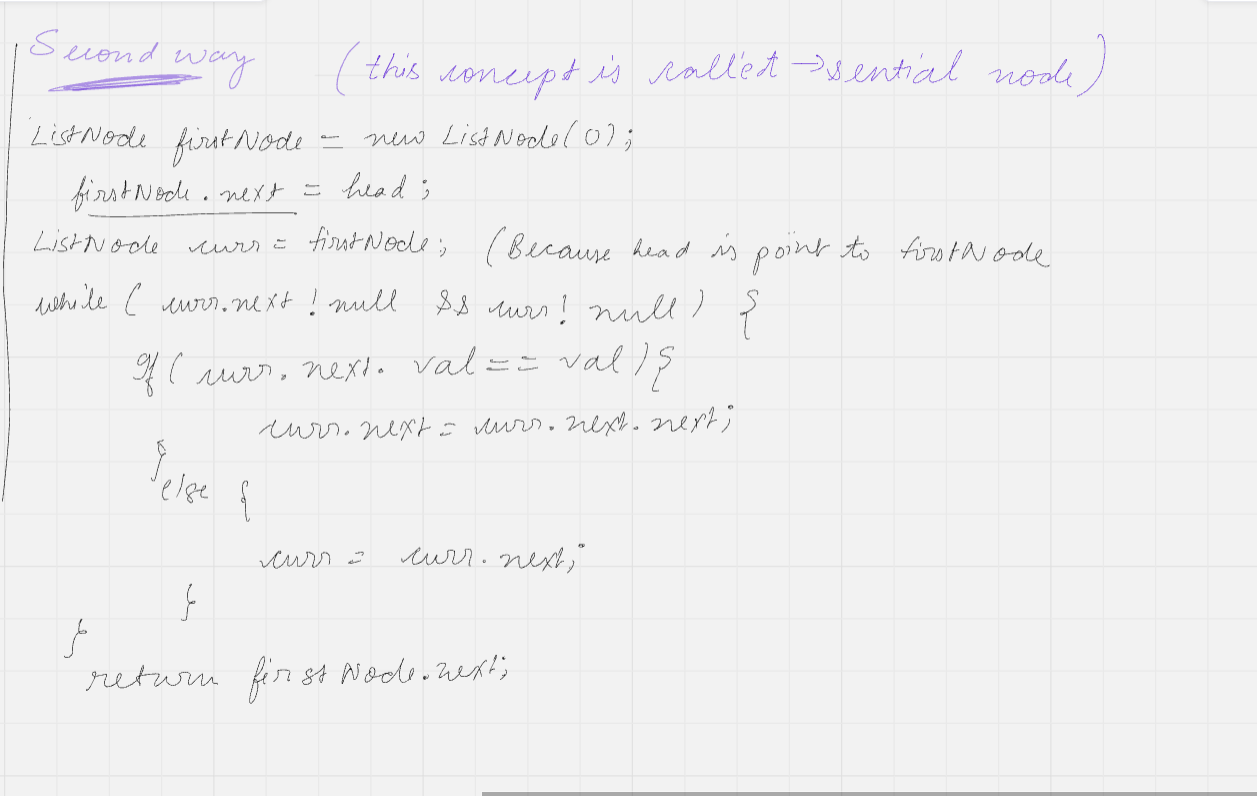 Second way (this concept is called → sential node)
ListNode firstNode = new ListNode(0);
firstNode.next = head;
ListNode curr = firstNode; (Because head is point to firstNode
while ( curr.next ! null && curr ! null ) {
If ( curr.next.val == val ) {
curr.next = curr.next.next;
}
else {
curr = curr.next;
}
}
return firstNode.next;